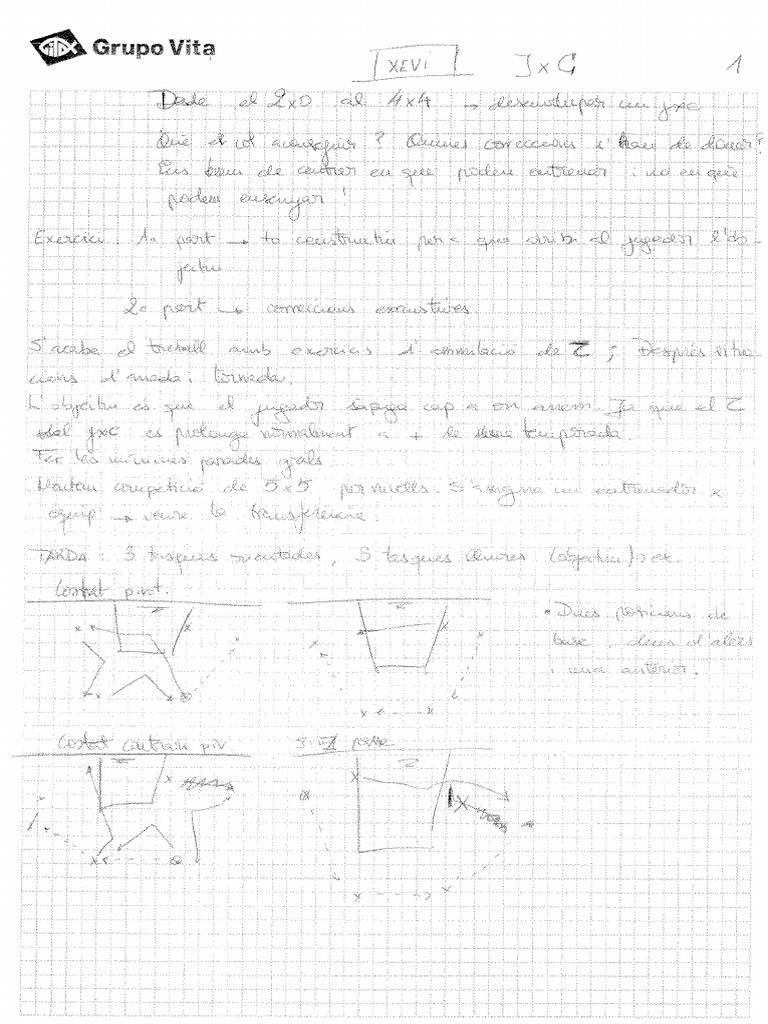 Grupo Vita
XEVi JxC 1
Desde el 2x0 al 4x4 → desenvolupar un jxc
Què es vol aconseguir? Quines correccions s'han de donar?
Ens hem de centrar en que podem entrenar i no en què
podem ensenyar!
Exercici: 1a part → to constructiu per a que arribi al jugador l'ob-
jectiu
2a part → correccions exhaustives.
S'acaba el treball amb exercicis d'anul·lació de τ; Després situa-
cions d'anada i tornada.
L'objectiu és que el jugador sàpiga cap a on anem. Ja que el τ
del jxc es prolonga normalment a + de temporada.
Fer les mínimes parades grals.
Muntem competició de 5x5 per nivells. S'assigna un entrenador x
equip → veure la transferència.
TARDA: 3 tasques muntades, 3 tasques (objectiu)
Costat pivot.
• Dues posicions de
base, dues d'alers
i una interior.
Costat contrari piv